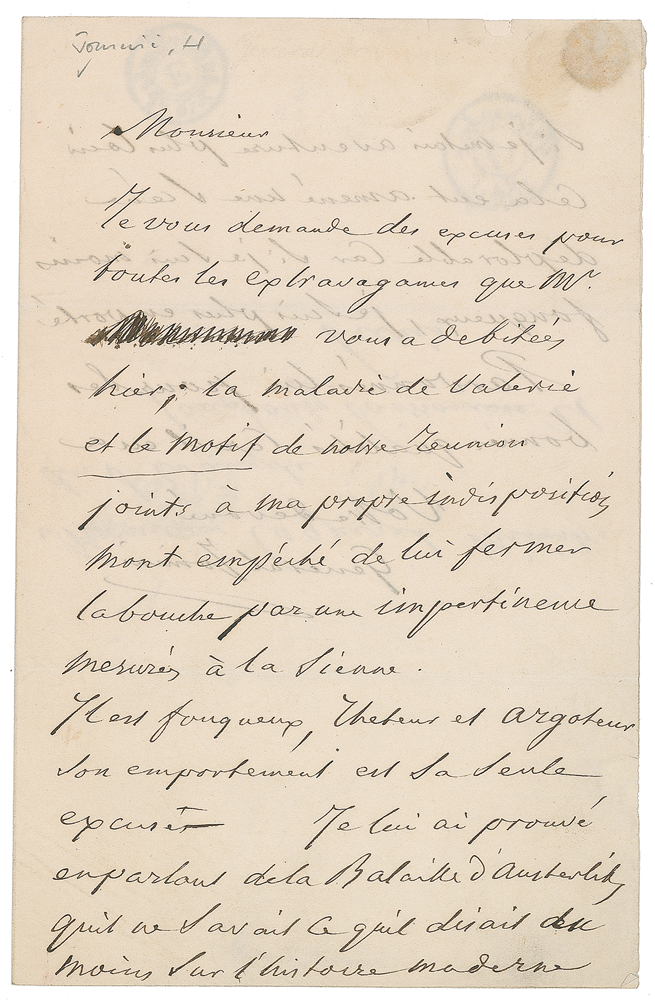 Jomini, H
Monsieur
Je vous demande des excuses pour
toutes les extravagances que Mr.
vous a debitées
hier; la maladie de Valerie
et le motif de notre reunion
joints à ma propre indisposition
mont empéché de lui fermer
labouche par une impertinence
mesurée à la sienne.
Il est fougueux, Rheteur et argoteur
son emportement est sa seule
excuse Je lui ai prouvé
enparlant dela Bataille d'Austerlitz
quil ne savait ce quil disait du
moins sur l'histoire moderne